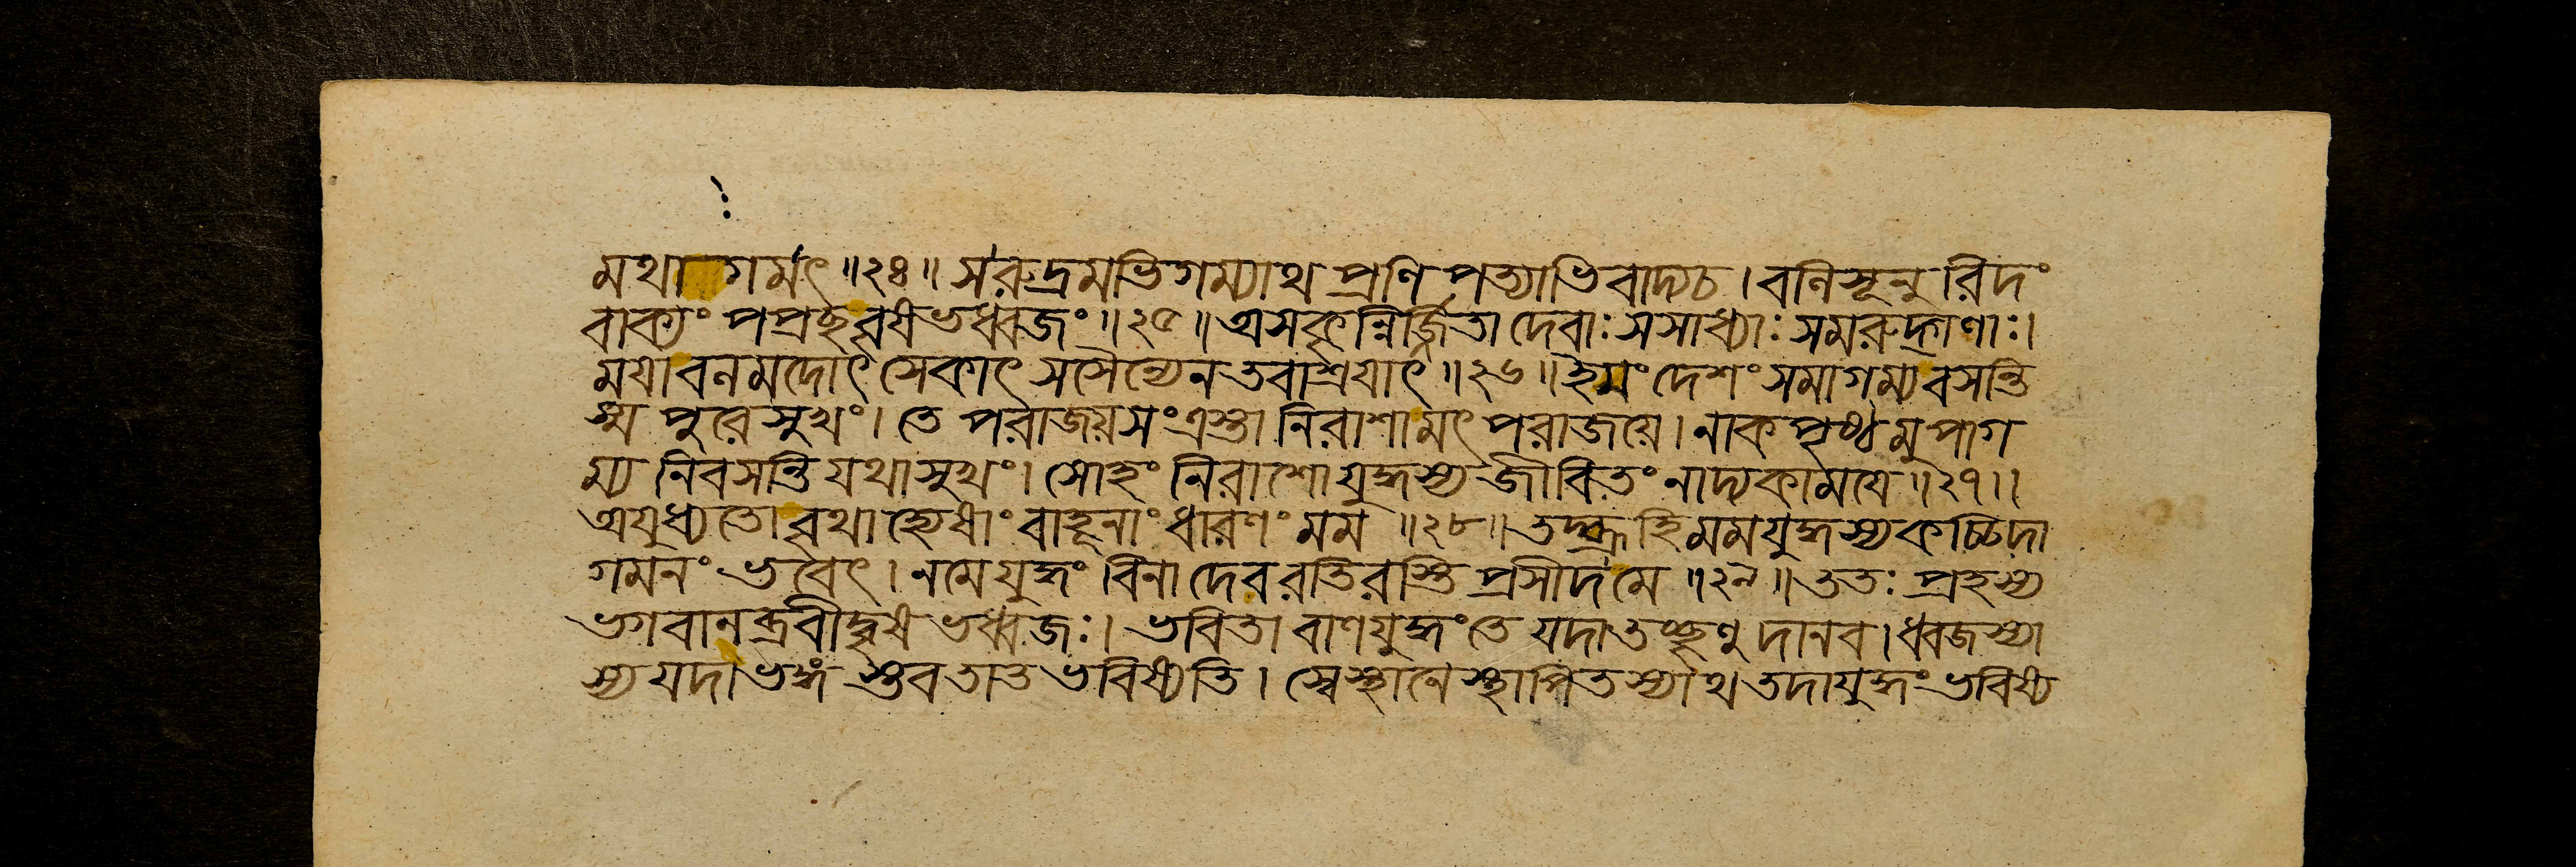 মথাগমৎ ॥২৪॥ স রুদ্রমভিগম্যাথ প্রণিপত্যাভিবাদ্য চ। বলিসূনুরিদং
বাক্যং পপ্রচ্ছ বৃষভধ্বজং ॥২৫॥ অসকৃন্নির্জ্জিতা দেবাঃ সসাধ্যাঃ সমরুদ্গণাঃ।
ময়া বলমদোৎসেকাৎ সসৈন্যেন তবাশ্রয়াৎ ॥২৬॥ ইমং দেশং সমাগম্য বসন্তি
স্ম পুরে সুখং। তে পরাজয়সংত্রস্তা নিরাশা মৎপরাজয়ে। নাকপৃষ্ঠমুপাগ
ম্য নিবসন্তি যথাসুখং। সোহং নিরাশো যুদ্ধস্য জীবিতং নাদ্য কাময়ে ॥২৭॥
অযুধ্যতো বৃথা হ্যেষাং বাহূনাং ধারণং মম ॥২৮॥ তদ্ব্রূহি মম যুদ্ধস্য কচ্চিদা
গমনং ভবেৎ। ন মে যুদ্ধং বিনা দেব রতিরস্তি প্রসীদ মে ॥২৯॥ ততঃ প্রহস্য
ভগবানব্রবীদ্বৃষভধ্বজঃ। ভবিতা বাণ যুদ্ধং তে যদা তচ্ছৃণু দানব। ধ্বজস্যা
স্য যদা ভঙ্গস্তব তাত ভবিষ্যতি। স্বে স্থানে স্থাপিতস্যাথ তদা যুদ্ধং ভবিষ্য